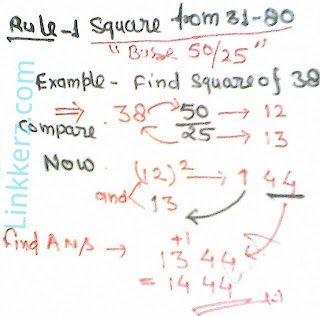 Rule-1 Square from 31-80
"Base 50/25"
Example - Find Square of 38
⇒ 38 50 → 12
Compare 25 → 13
Now (12)² → 1 44
and 13
Find ANS → +1
13 44
= 14 44
Linkkerz.com